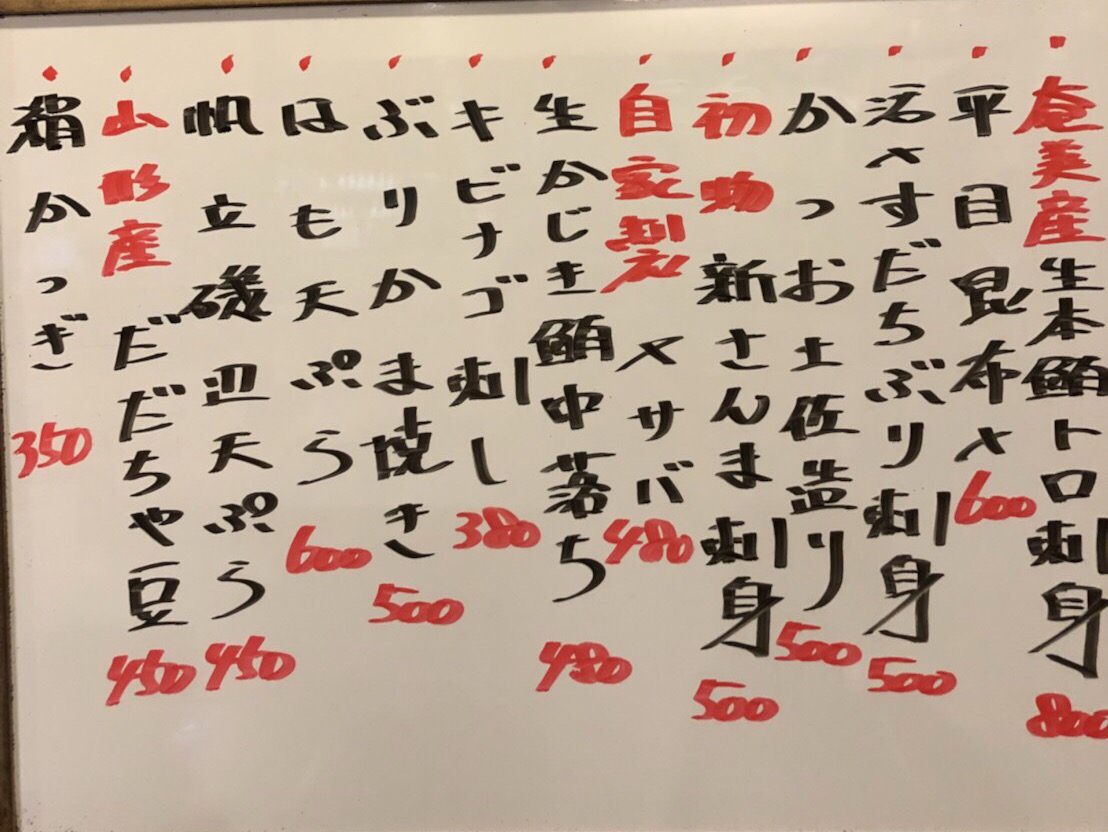 奄美産生本鮪トロ刺身 800
平目昆布〆 600
活〆すだちぶり刺身 500
かつお土佐造り 500
初物 新さんま刺身 500
自家製 〆サバ 480
生かじき鮪中落ち 480
キビナゴ刺し 380
ぶりかま焼き 500
はも天ぷら 600
帆立磯辺天ぷら 450
山形産 だだちゃ豆 450
絹かつぎ 350